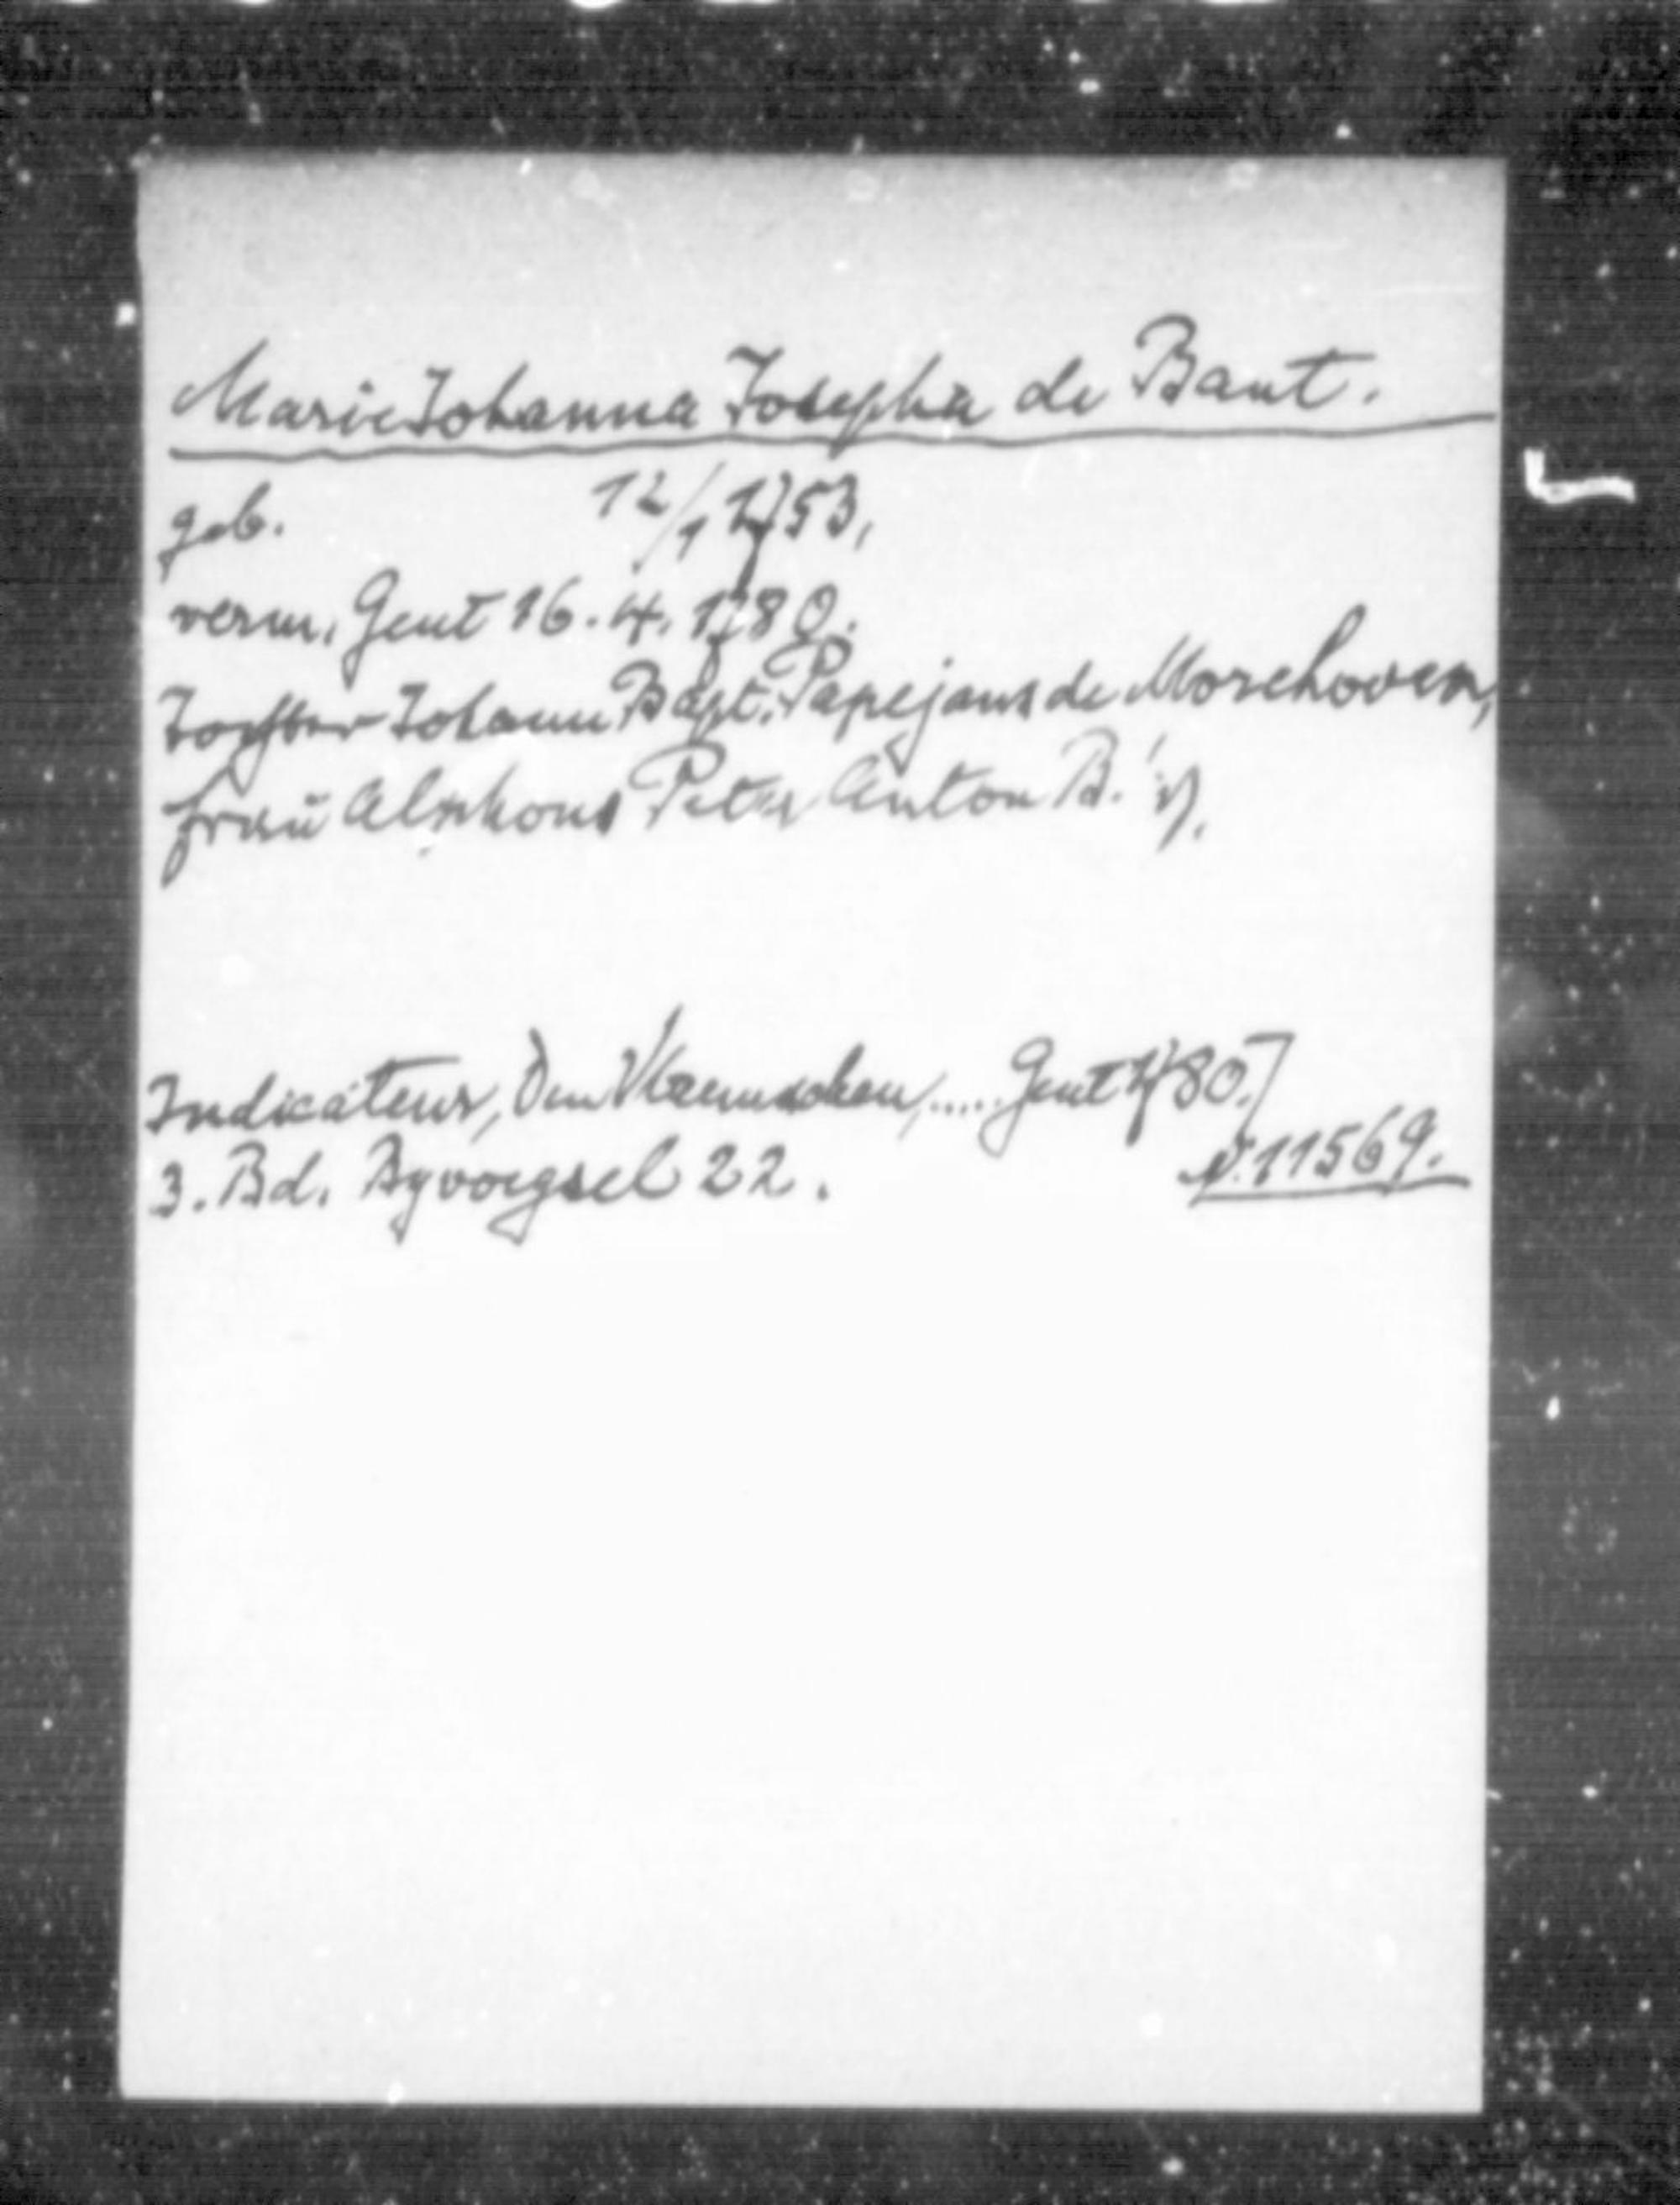 Marie Johanna Josepha de Baut.
geb. 12/1 1753,
verm. Gent 16.4.1780.
Tochter Johann Bapt. Papejans de Morchoven,
Frau Alphons Peter Anton B.'s).
Indicateur, Den Vlaemschen,..... Gent 1780.]
3. Bd. Byvoegsel 22. N. 11569.